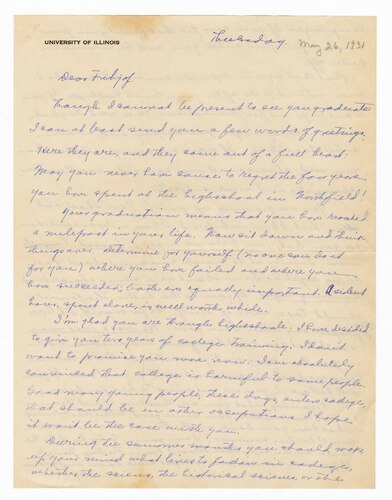 UNIVERSITY OF ILLINOIS
Thursday. May 26, 1931
Dear Fritjof:
Though I cannot be present to see you graduate
I can at least send you a few words of greetings.
Here they are, and they come out of a full heart:
May you never have cause to regret the four years
you have spent at the highschool in Northfield!
Your graduation means that you have reached
a milepost in your life. Now sit down and think
things over. Determine for yourself (no one can do it
for you) where you have failed and where you
have succeeded; both are equally important. A silent
hour, spent alone, is well worth while.
I'm glad you are through highschool. I have decided
to give you two years of college training. I don't
want to promise you more now. I am absolutely
convinced that college is harmful to some people.
Good many young people, these days, enter college,
that should be in other occupations. I hope
it won't be the case with you.
During the summer months you should make
up your mind what lines to follow in college,
whether the science, the historical sciences, or the